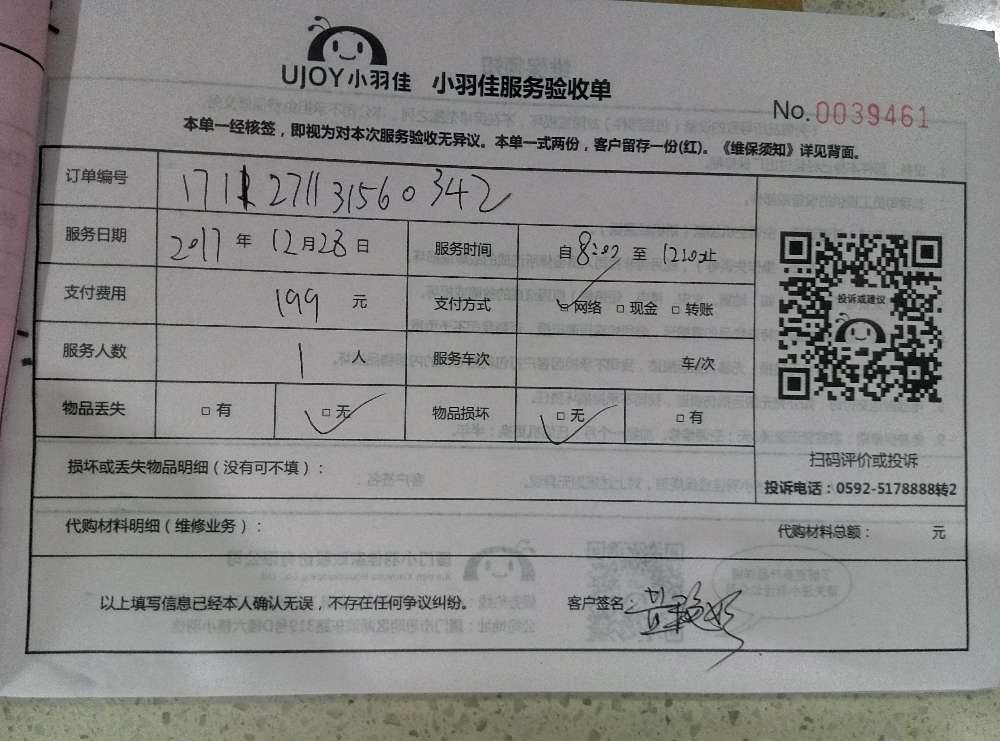 UJOY小羽佳 小羽佳服务验收单
No.0039461
本单一经核签，即视为对本次服务验收无异议。本单一式两份，客户留存一份(红)。《维保须知》详见背面。
订单编号 171127113156 0342
服务日期 2017 年 12 月 28 日 服务时间 自 8:00 至 12:00止
支付费用 199 元 支付方式 □网络 □现金 □转账
投诉或建议
服务人数 1 人 服务车次 车/次
物品丢失 □有 □无 物品损坏 □无 □有
扫码评价或投诉
损坏或丢失物品明细（没有可不填）：
投诉电话：0592-5178888转2
代购材料明细（维修业务）： 代购材料总额： 元
以上填写信息已经本人确认无误，不存在任何争议纠纷。 客户签名：